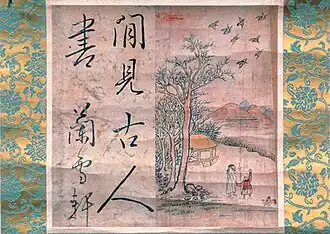 閒見古人
書蘭雪軒